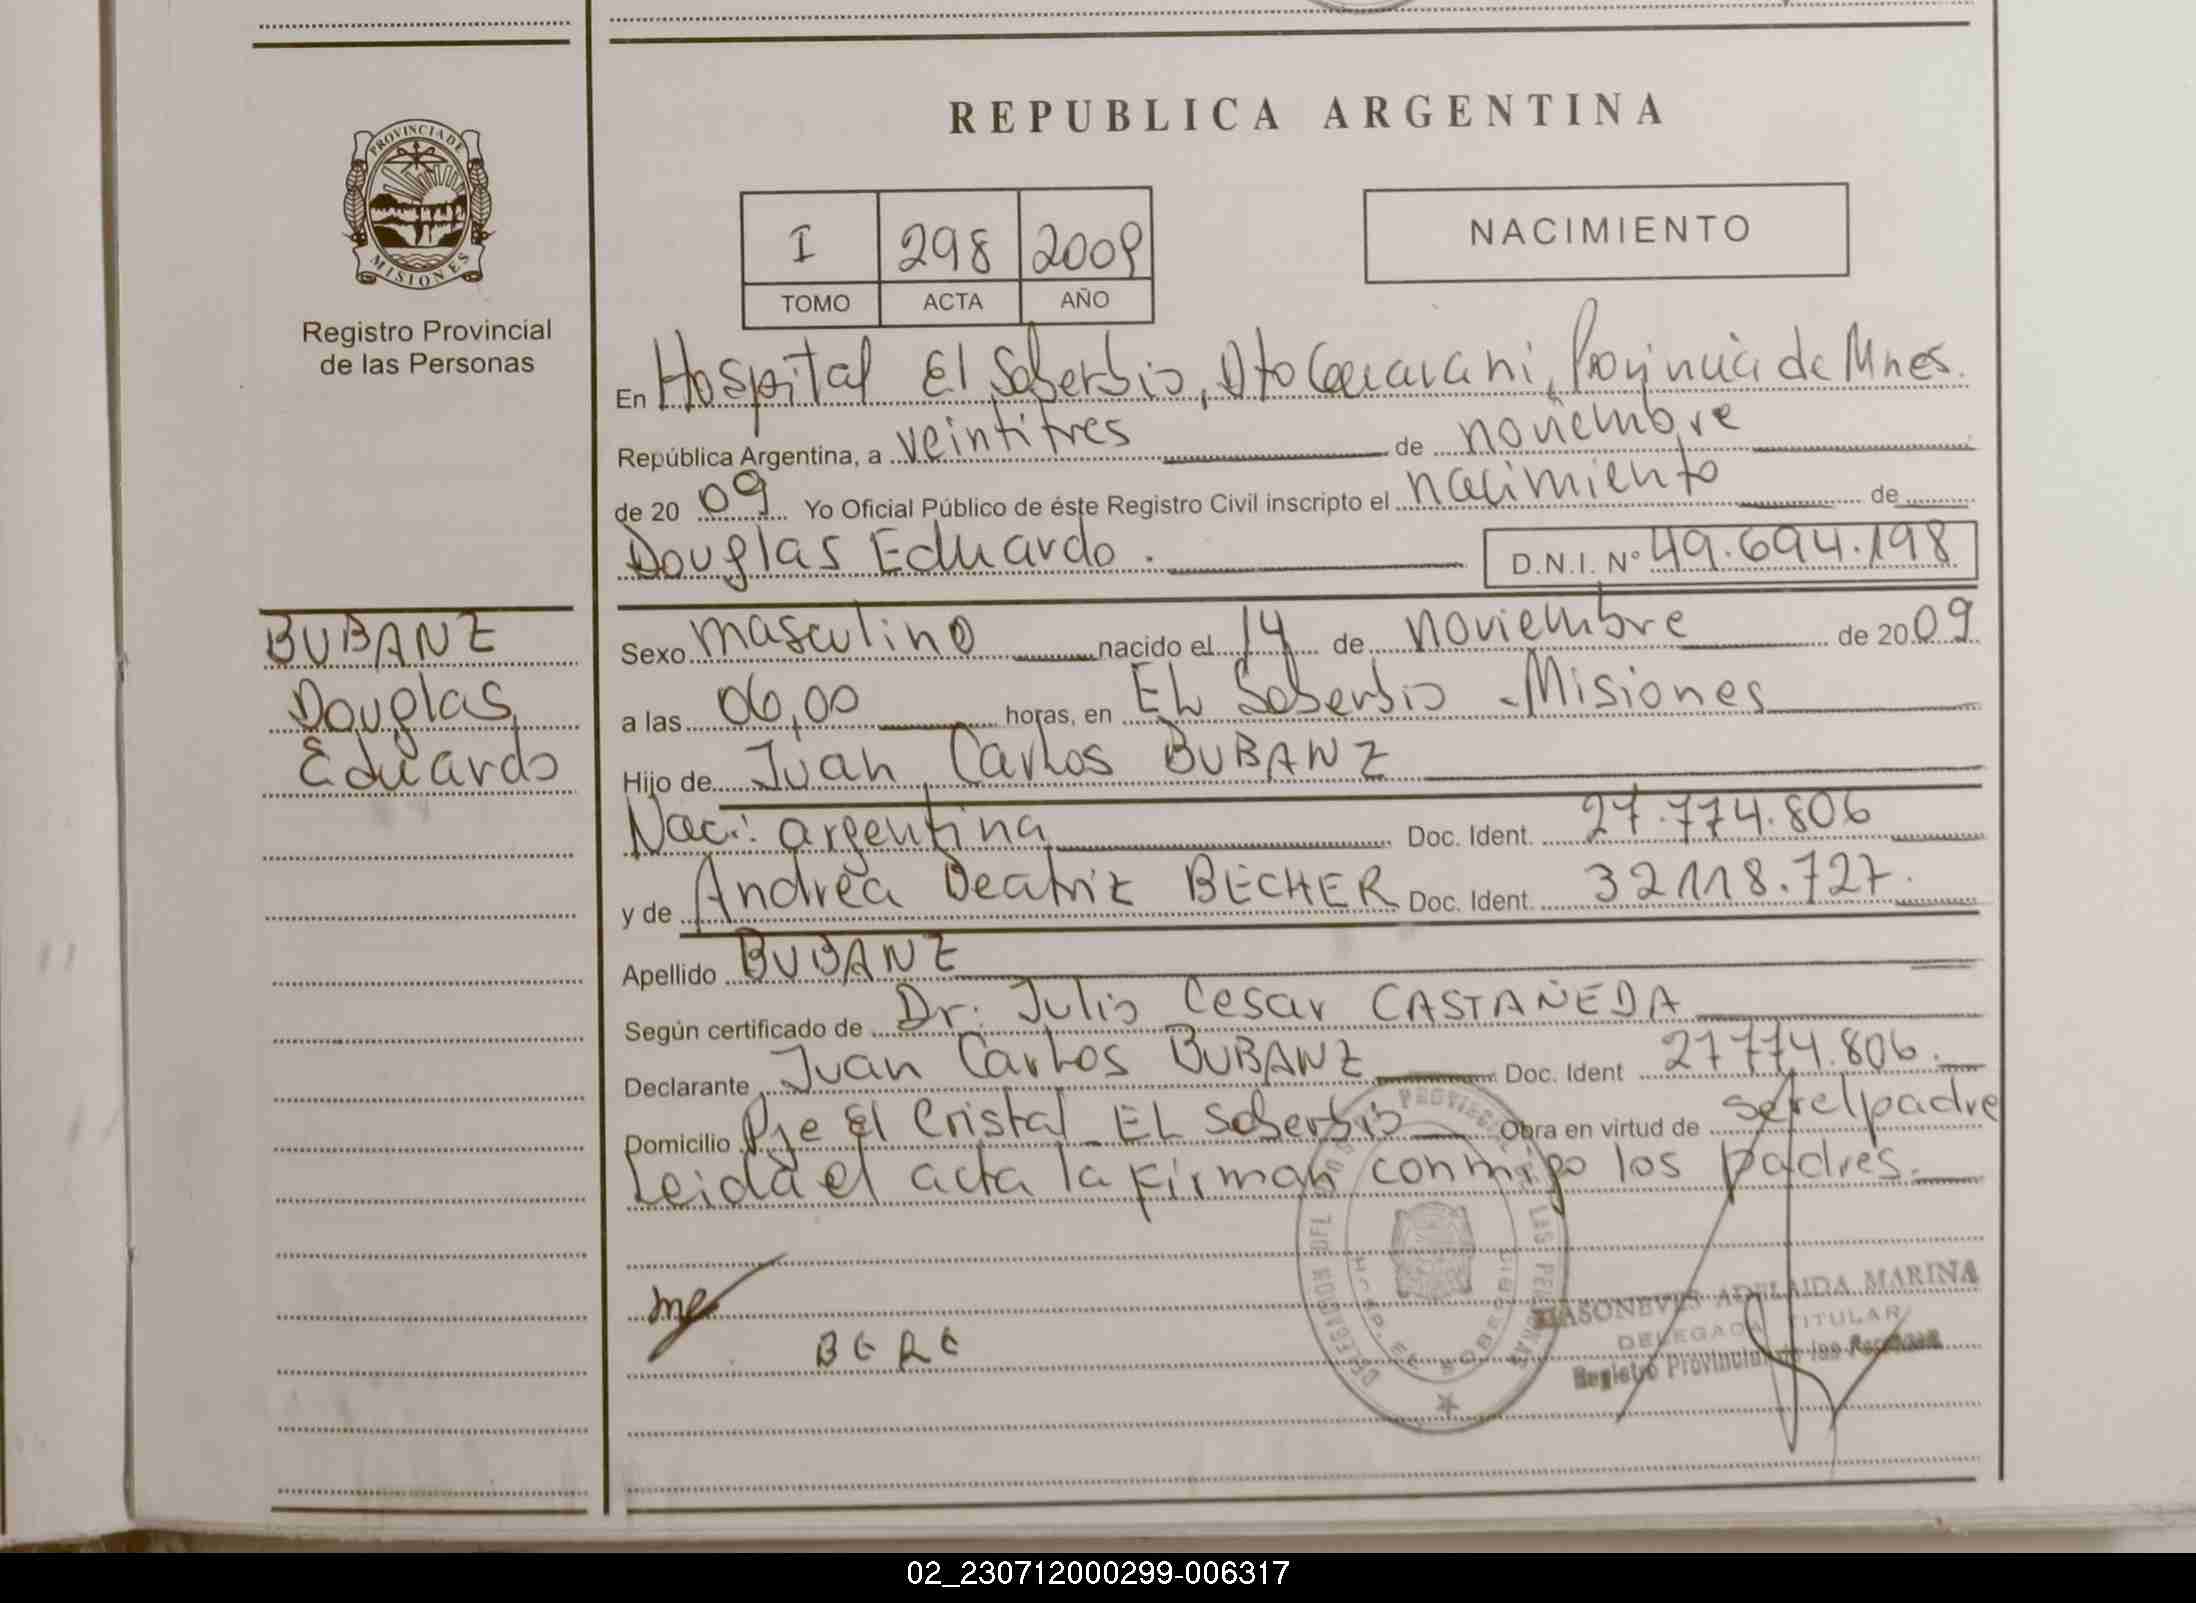 REPUBLICA ARGENTINA
PROVINCIA DE
MISIONES
Registro Provincial
de las Personas
I 298 2009
TOMO ACTA AÑO
NACIMIENTO
En Hospital El Soberbio, Dto Guarani, Provincia de Mnes.
República Argentina, a veintitres de noviembre
de 20 09 Yo Oficial Público de éste Registro Civil inscripto el nacimiento de
Douglas Eduardo. D.N.I. Nº 49.694.198
BUBANZ
Douglas
Eduardo
Sexo masculino nacido el 14 de noviembre de 20 09
a las 06,00 horas, en EL Soberbio - Misiones
Hijo de Juan Carlos BUBANZ
Nac: argentina Doc. Ident. 27.774.806
y de Andrea Beatriz BECHER Doc. Ident. 32118.727.
Apellido BUBANZ
Según certificado de Dr. Julio Cesar CASTAÑEDA
Declarante Juan Carlos BUBANZ Doc. Ident 27774.806.
Domicilio Pje El Cristal EL Soberbio Obra en virtud de ser el padre
Leida el acta la firman conmigo los padres.
DELEGACION DEL PROVINCIAL LAS PERSONAS
ADELAIDA MARINA
DELEGADA TITULAR
Registro Provincial de las Personas
02_230712000299-006317